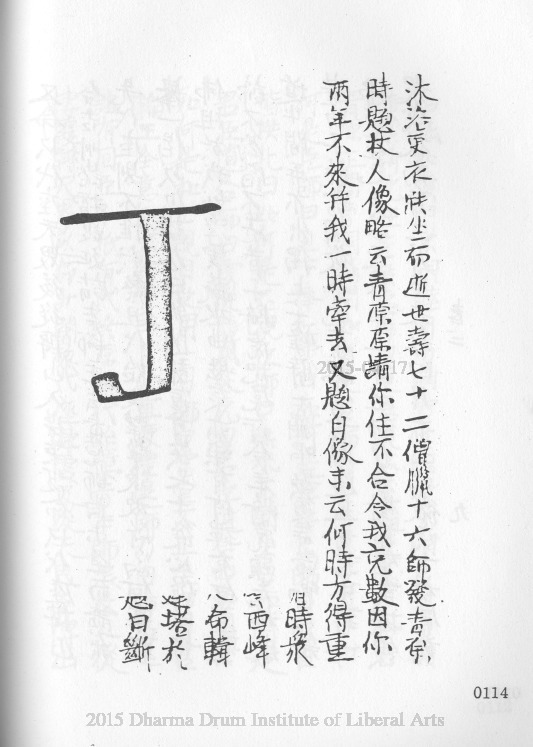 沐浴更衣趺坐而逝世壽七十二僧臘十六師發青原
時題杖人像略云青原原請你住不合令我充數因你
兩年不來許我一時牽去又題自像末云何時方得重
時眾
西峰
命韓
塔於
自斷
丁
0114
2015 Dharma Drum Institute of Liberal Arts